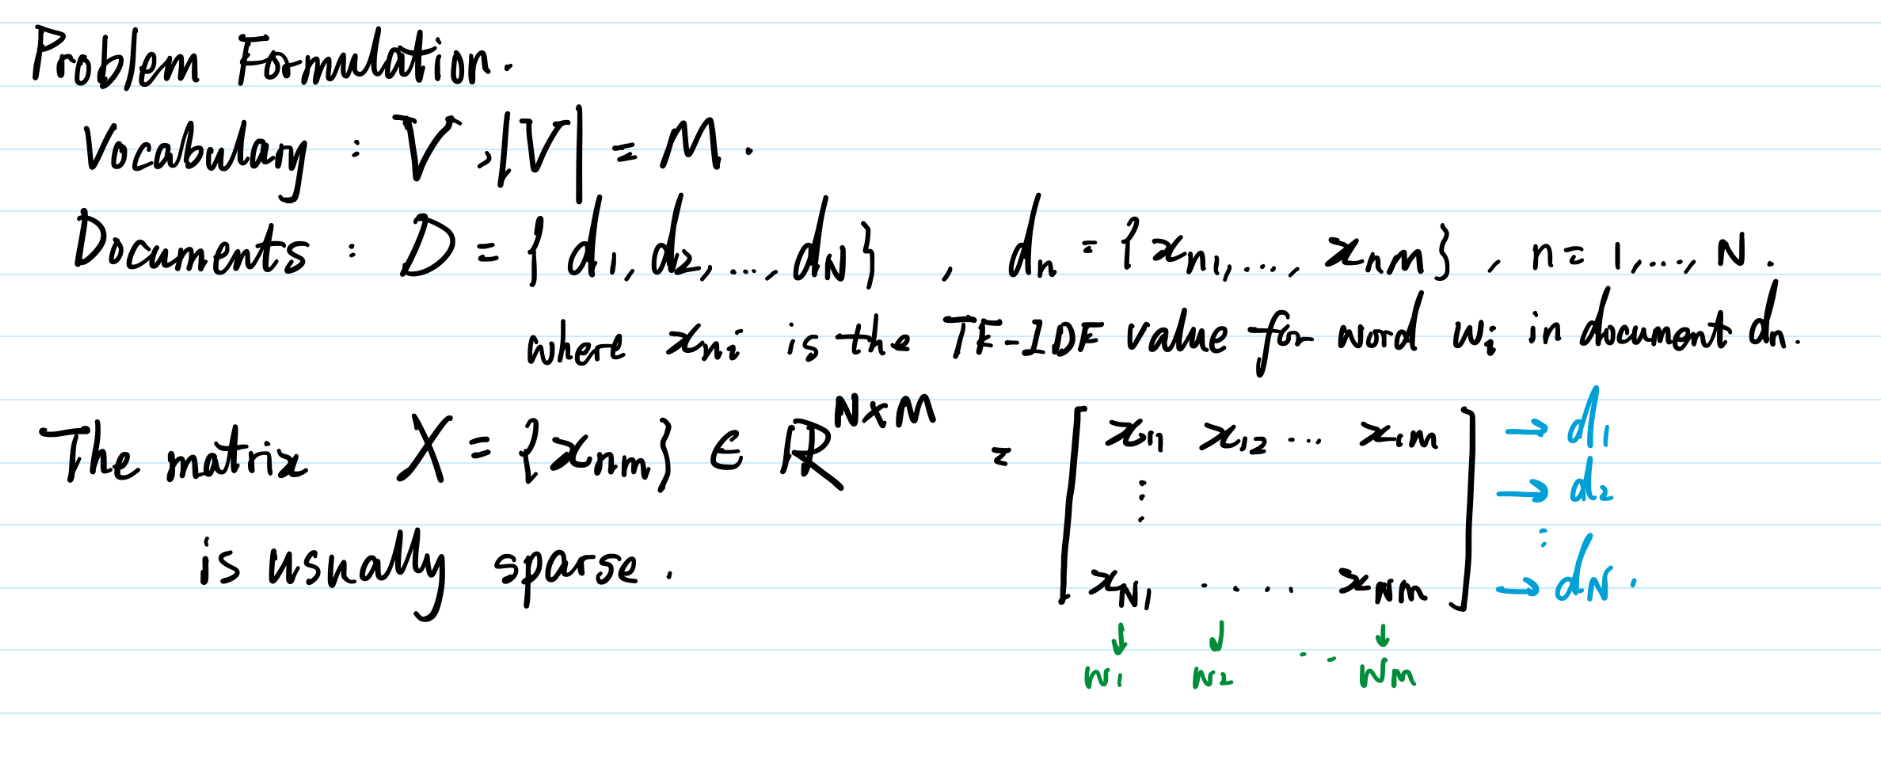 Problem Formulation.
Vocabulary : V, |V| = M.
Documents : D = { d₁, d₂, ..., d_N } , d_n = { x_n1, ..., x_nM } , n = 1, ..., N.
where x_ni is the TF-IDF value for word w_i in document d_n.
The matrix X = {x_nm} ∈ ℝ^{N×M} = [ x₁₁ x₁₂ ... x_1M → d₁
⋮ → d₂
⋮
is usually sparse. x_N1 ..... x_NM ] → d_N.
↓ ↓ ↓
w₁ w₂ ... w_M